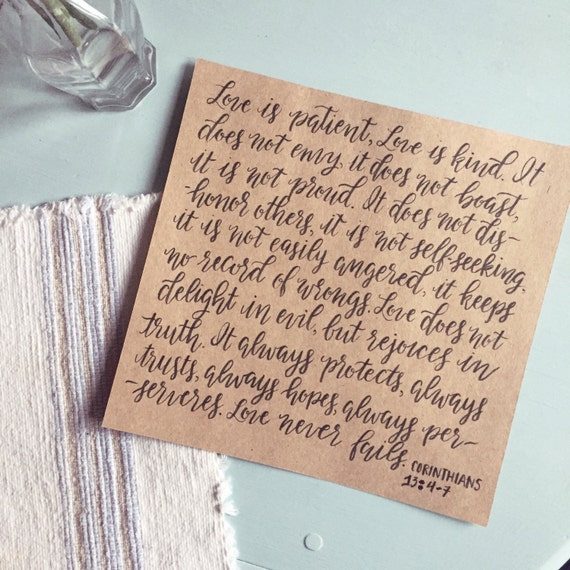 Love is patient, Love is kind. It
does not envy, it does not boast,
it is not proud. It does not dis-
-honor others, it is not self-seeking,
it is not easily angered, it keeps
no record of wrongs. Love does not
delight in evil, but rejoices in
truth. It always protects, always
trusts, always hopes, always per-
-serveres. Love never fails.
CORINTHIANS
13:4-7